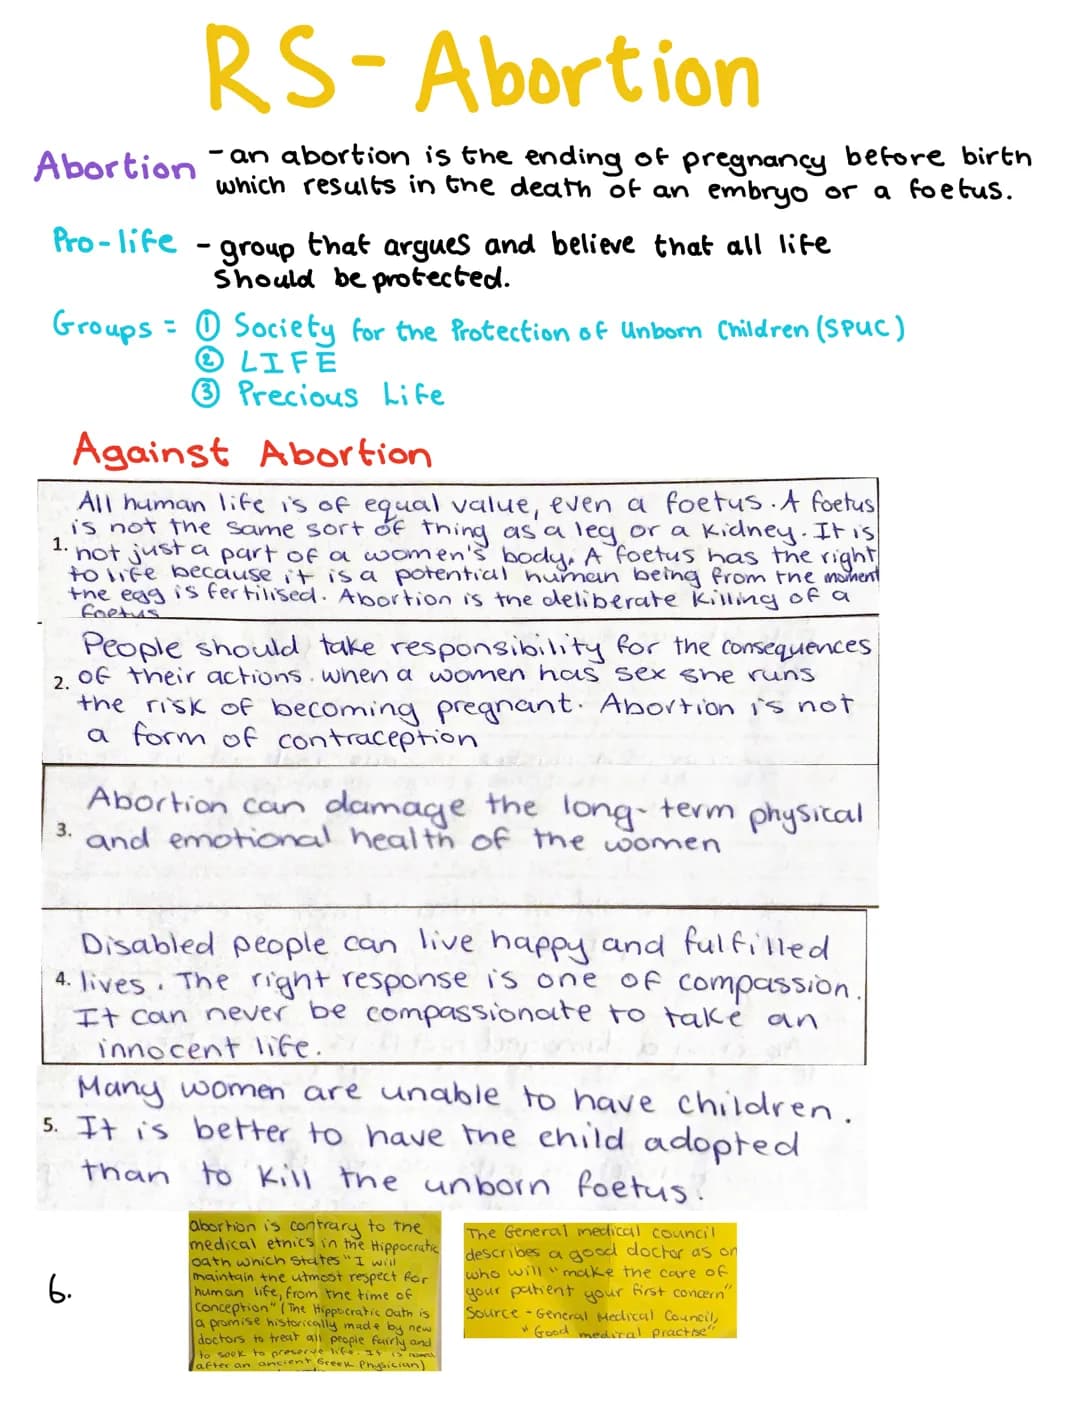 RS-Abortion
Abortion - an abortion is the ending of pregnancy before birth
which results in the death of an embryo or a foetus.
Pro-life - group that argues and believe that all life
should be protected.
Groups = ① Society for the Protection of Unborn Children (SPUC)
② LIFE
③ Precious Life
Against Abortion
All human life is of equal value, even a foetus. A foetus
is not the same sort of thing as a leg or a kidney. It is
1. not just a part of a women's body. A foetus has the right
to life because it is a potential human being from the moment
the egg is fertilised. Abortion is the deliberate killing of a
foetus
People should take responsibility for the consequences
2. of their actions. when a women has sex she runs
the risk of becoming pregnant. Abortion is not
a form of contraception
Abortion can damage the long-term physical
3. and emotional health of the women
Disabled people can live happy and fulfilled
4. lives. The right response is one of compassion.
It can never be compassionate to take an
innocent life.
Many women are unable to have children.
5. It is better to have the child adopted
than to kill the unborn foetus.
6.
abortion is contrary to the
medical ethics in the Hippocratic
oath which states "I will
maintain the utmost respect for
human life, from the time of
conception" (The Hippocratic Oath is
a promise historically made by new
doctors to treat all people fairly and
to seek to preserve life. It is named
after an ancient Greek Physician)
The General medical council
describes a good doctor as on
who will "make the care of
your patient your first concern"
Source - General Medical Council,
"Good medical practise"